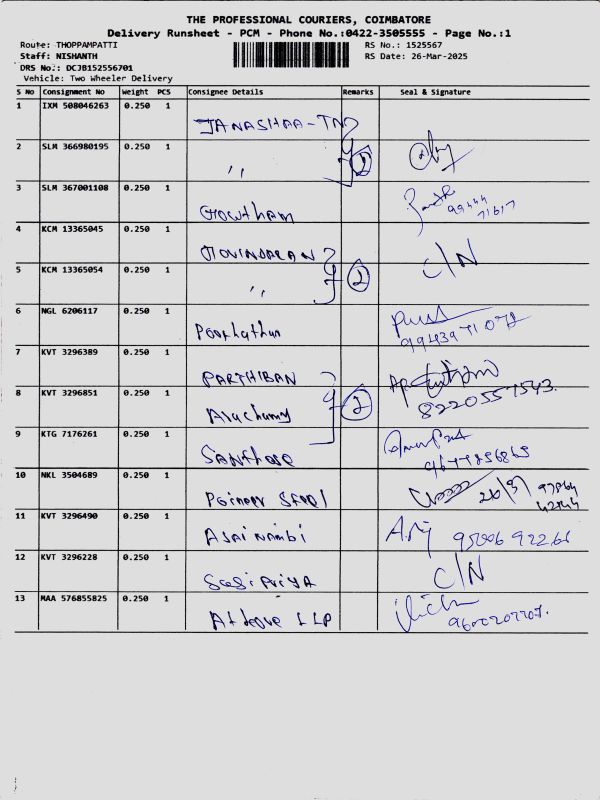 THE PROFESSIONAL COURIERS, COIMBATORE
Delivery Runsheet - PCM - Phone No.:0422-3505555 - Page No.:1
Route: THOPPAMPATTI RS No.: 1525567
Staff: NISHANTH RS Date: 26-Mar-2025
DRS No.: DCJB152556701
Vehicle: Two Wheeler Delivery
S No Consignment No Weight PCS Consignee Details Remarks Seal & Signature
1 IXM 508046263 0.250 1 JANASHAA-TN
2 SLM 366980195 0.250 1 " 2
3 SLM 367001108 0.250 1 Gowtham 99444 71617
4 KCM 13365045 0.250 1 C/N
5 KCM 13365054 0.250 1 " 2
6 NGL 6206117 0.250 1
7 KVT 3296389 0.250 1 PARTHIBAN
8 KVT 3296851 0.250 1 2
9 KTG 7176261 0.250 1
10 NKL 3504689 0.250 1
11 KVT 3296490 0.250 1 Asai nambi
12 KVT 3296228 0.250 1 Sasi Priya C/N
13 MAA 576855825 0.250 1 LLP